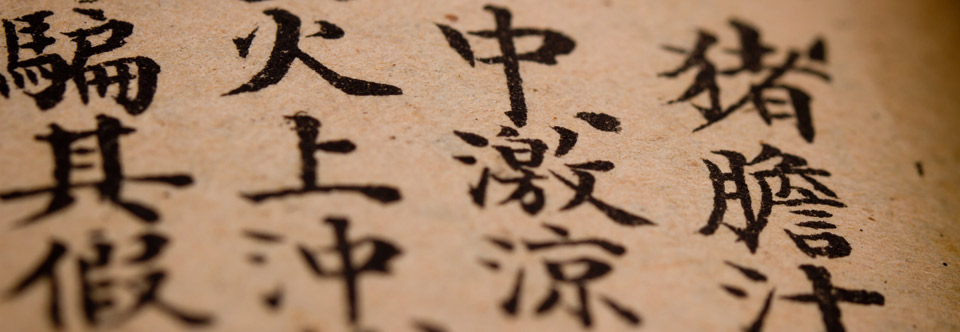 猪膽汁
中激涼
火上沖
騙其假